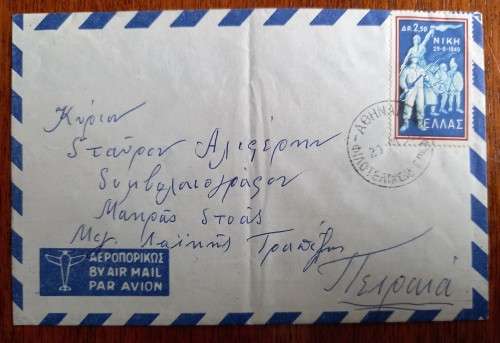 ΔΡ. 2,50
ΝΙΚΗ
29-8-1949
ΕΛΛΑΣ
ΑΘΗΝΑΙ
Κύριον
Σταῦρον Ἀλιφέρην
Συμβολαιογράφον
Μακρᾶς Στοᾶς
Μεγ. Λαϊκῆς Τραπέζης
Πειραιᾶ
ΑΕΡΟΠΟΡΙΚΩΣ
BY AIR MAIL
PAR AVION